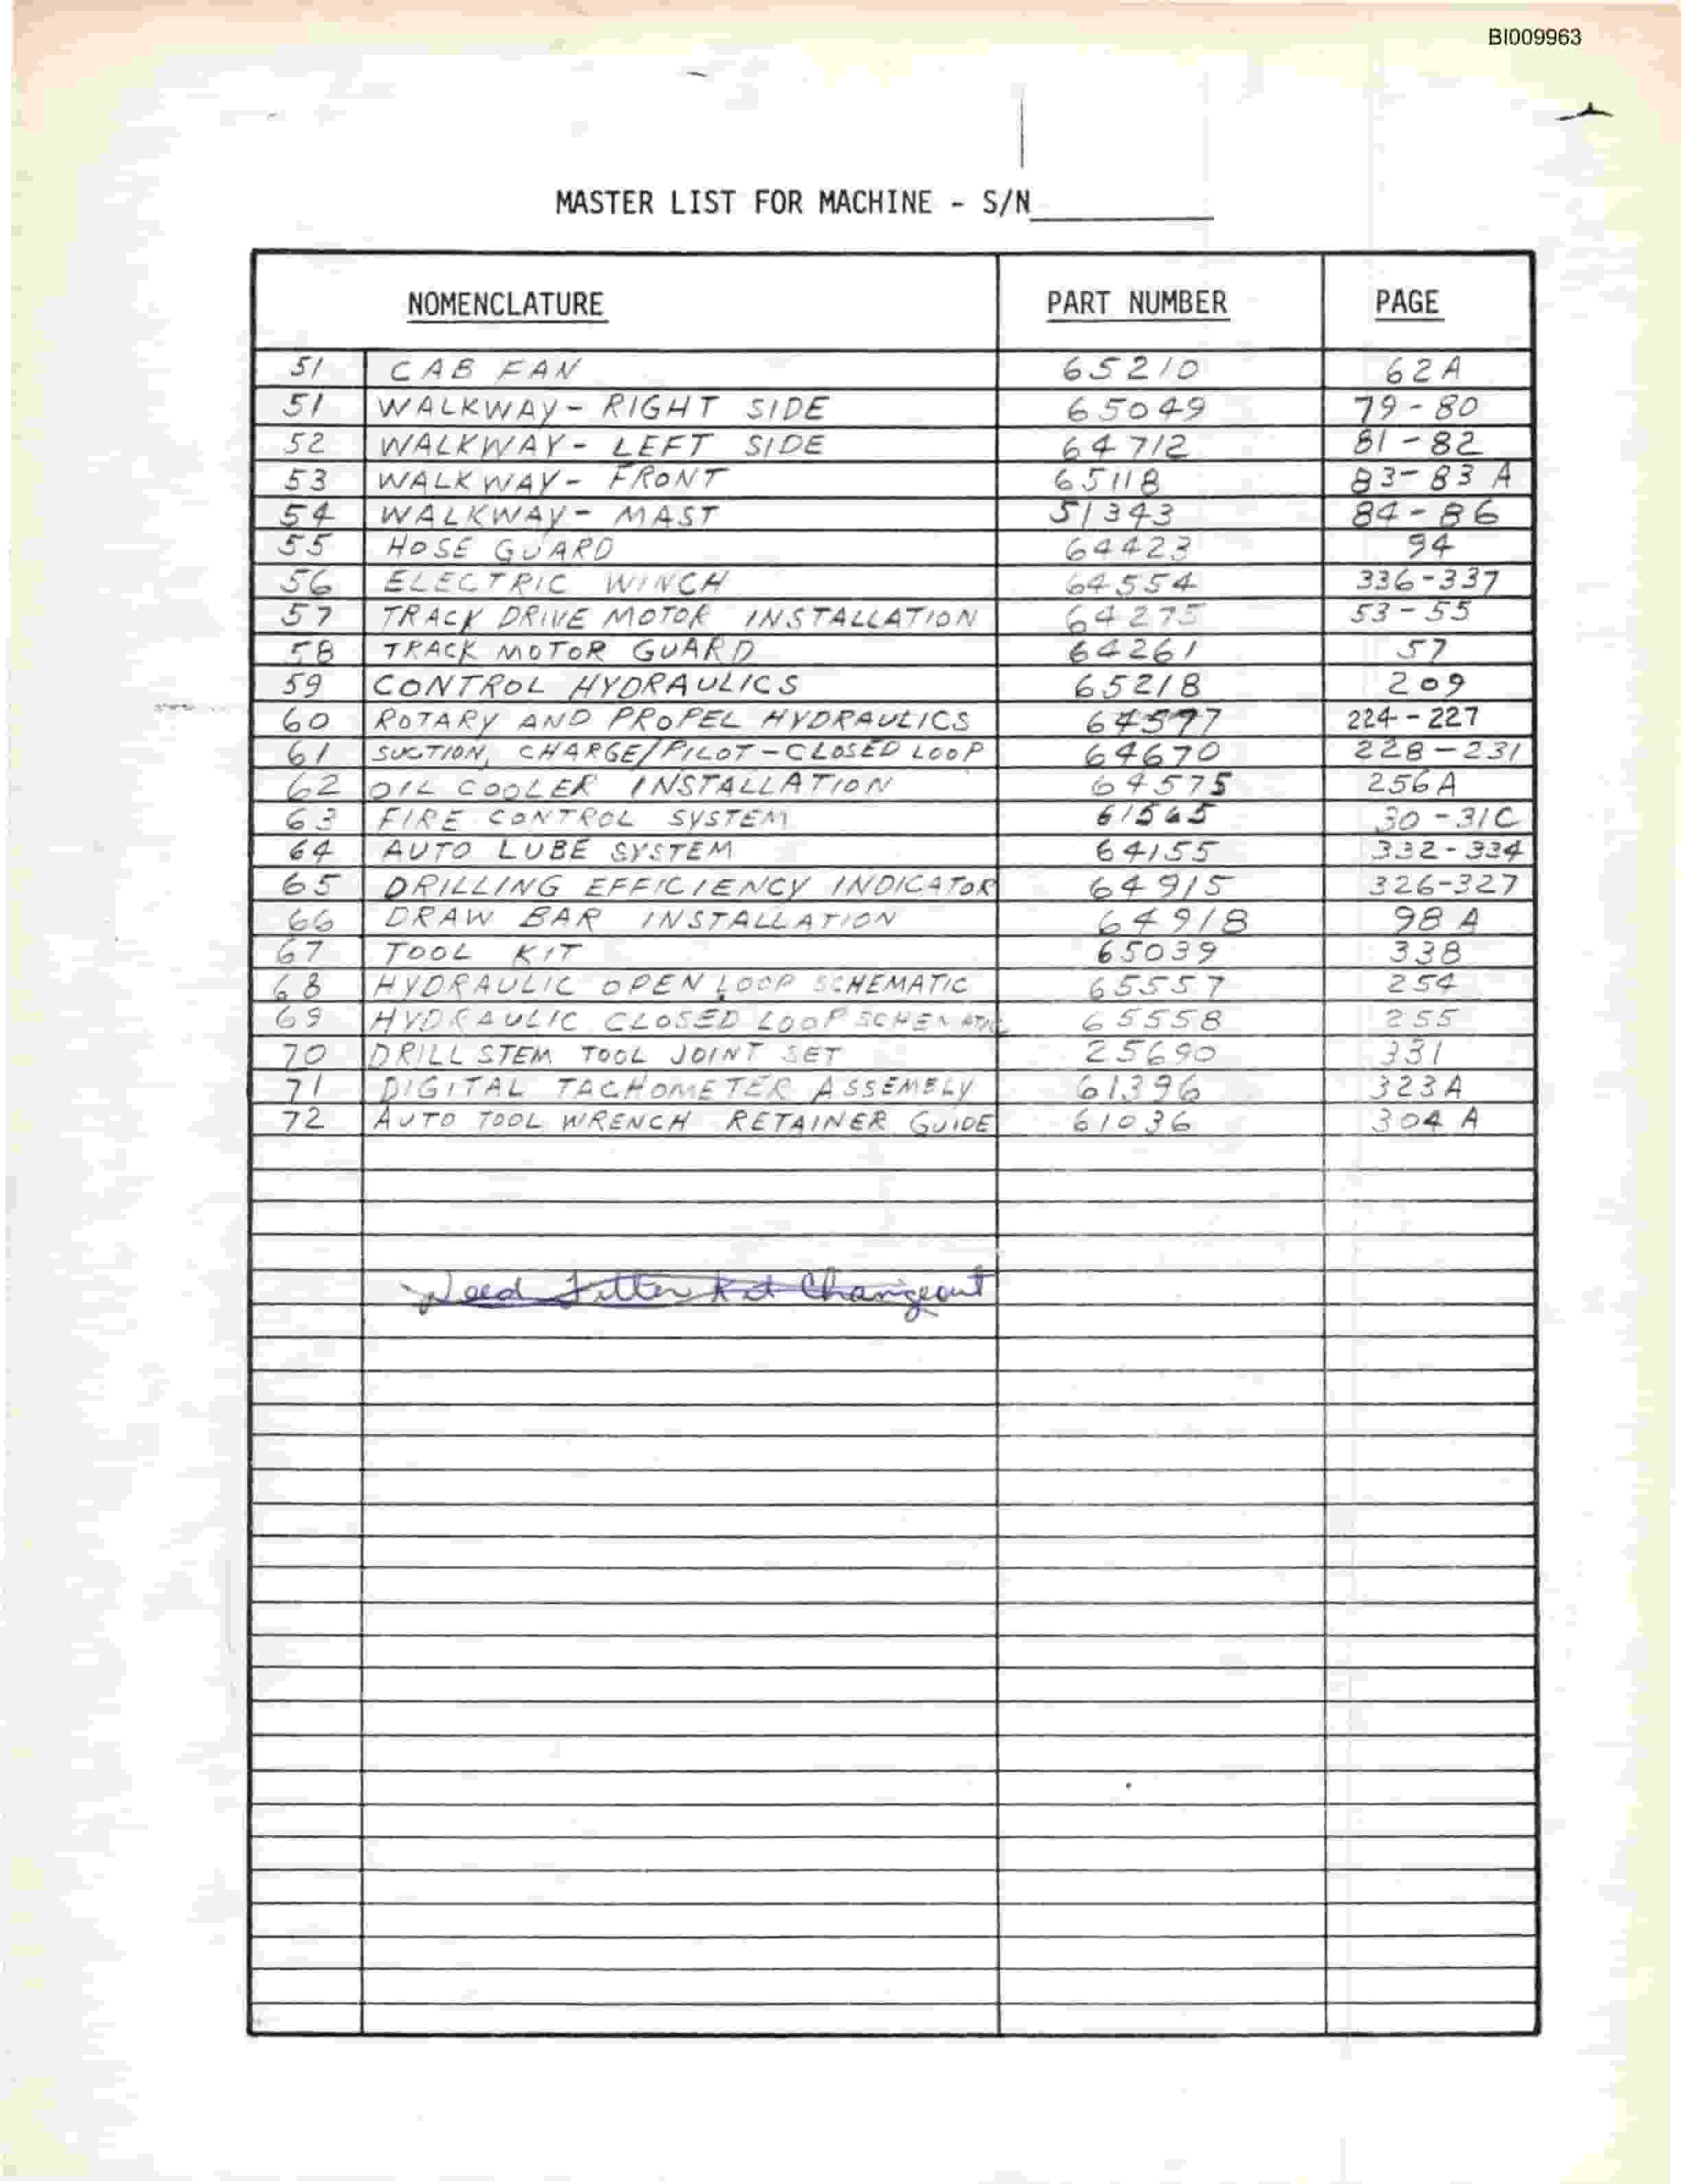 BI009963
MASTER LIST FOR MACHINE - S/N
NOMENCLATURE PART NUMBER PAGE
51 CAB FAN 65210 62A
51 WALKWAY- RIGHT SIDE 65049 79-80
52 WALKWAY- LEFT SIDE 64712 81-82
53 WALKWAY- FRONT 65118 83-83A
54 WALKWAY- MAST 51343 84-86
55 HOSE GUARD 64423 94
56 ELECTRIC WINCH 64554 336-337
57 TRACK DRIVE MOTOR INSTALLATION 64275 53-55
58 TRACK MOTOR GUARD 64261 57
59 CONTROL HYDRAULICS 65218 209
60 ROTARY AND PROPEL HYDRAULICS 64597 224-227
61 SUCTION, CHARGE/PILOT-CLOSED LOOP 64670 228-231
62 OIL COOLER INSTALLATION 64575 256A
63 FIRE CONTROL SYSTEM 61565 30-31C
64 AUTO LUBE SYSTEM 64155 332-334
65 DRILLING EFFICIENCY INDICATOR 64915 326-327
66 DRAW BAR INSTALLATION 64918 98A
67 TOOL KIT 65039 338
68 HYDRAULIC OPEN LOOP SCHEMATIC 65557 254
69 HYDRAULIC CLOSED LOOP SCHEMATIC 65558 255
70 DRILL STEM TOOL JOINT SET 25690 331
71 DIGITAL TACHOMETER ASSEMBLY 61396 323A
72 AUTO TOOL WRENCH RETAINER GUIDE 61036 304A
Need Filter Kit Changeout